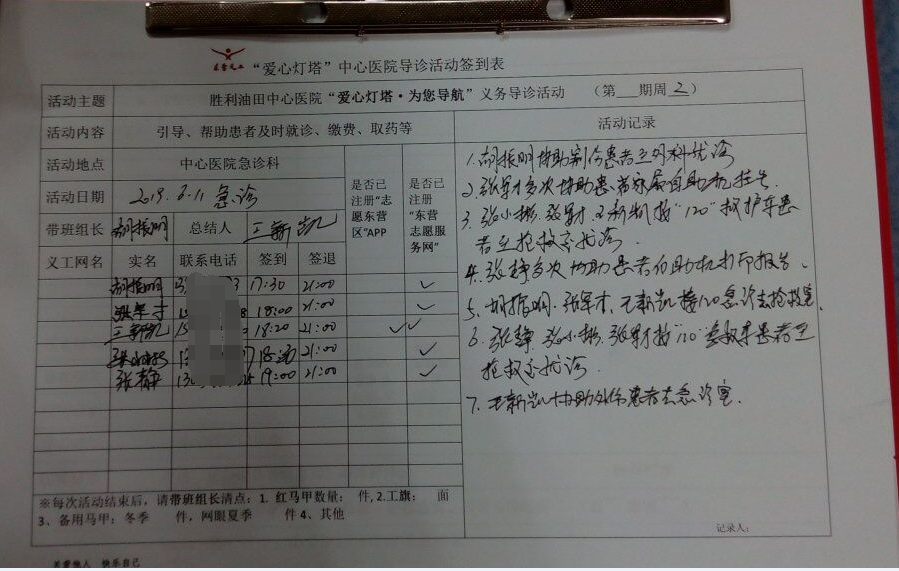 东营义工
“爱心灯塔”中心医院导诊活动签到表
活动主题 胜利油田中心医院“爱心灯塔·为您导航”义务导诊活动 (第 期周 2)
活动内容 引导、帮助患者及时就诊、缴费、取药等 活动记录
活动地点 中心医院急诊科
活动日期 急诊
是否已注册“志愿东营区”APP
是否已注册“东营志愿服务网”
带班组长 胡振明 总结人 王新凯
义工网名 实名 联系电话 签到 签退
胡振明 17:30 21:00 ✓
张军才 18:00 21:00 ✓
王新凯 18:20 21:00 ✓✓
21:00 ✓
张静 19:00 21:00 ✓
1.胡振明协助 患者至外科就诊
2.张军才多次协助患者家属自助机挂号
3.张小彬.张军才.王新凯接“120”救护车患
者至抢救室就诊.
4.张静多次协助患者自助机打印报告.
5.胡振明.张军才.王新凯接120急诊去抢救室
6.张静.张小彬.张军才接“120”急救车患者至
抢救室就诊.
7.王新凯协助外伤患者去急诊室.
※每次活动结束后，请带班组长清点：1. 红马甲数量： 件, 2.工旗： 面
3、备用马甲：冬季 件，网眼夏季 件 4、其他
记录人：
关爱他人 快乐自己